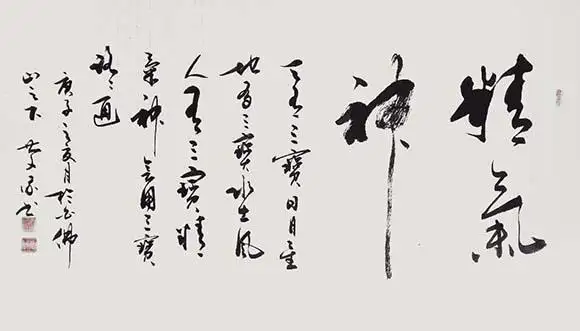 精氣
神
天有三寶日月星
地有三寶水土風
人有三寶精
氣神善用三寶
通
庚子之夏月於千佛
山之下 書